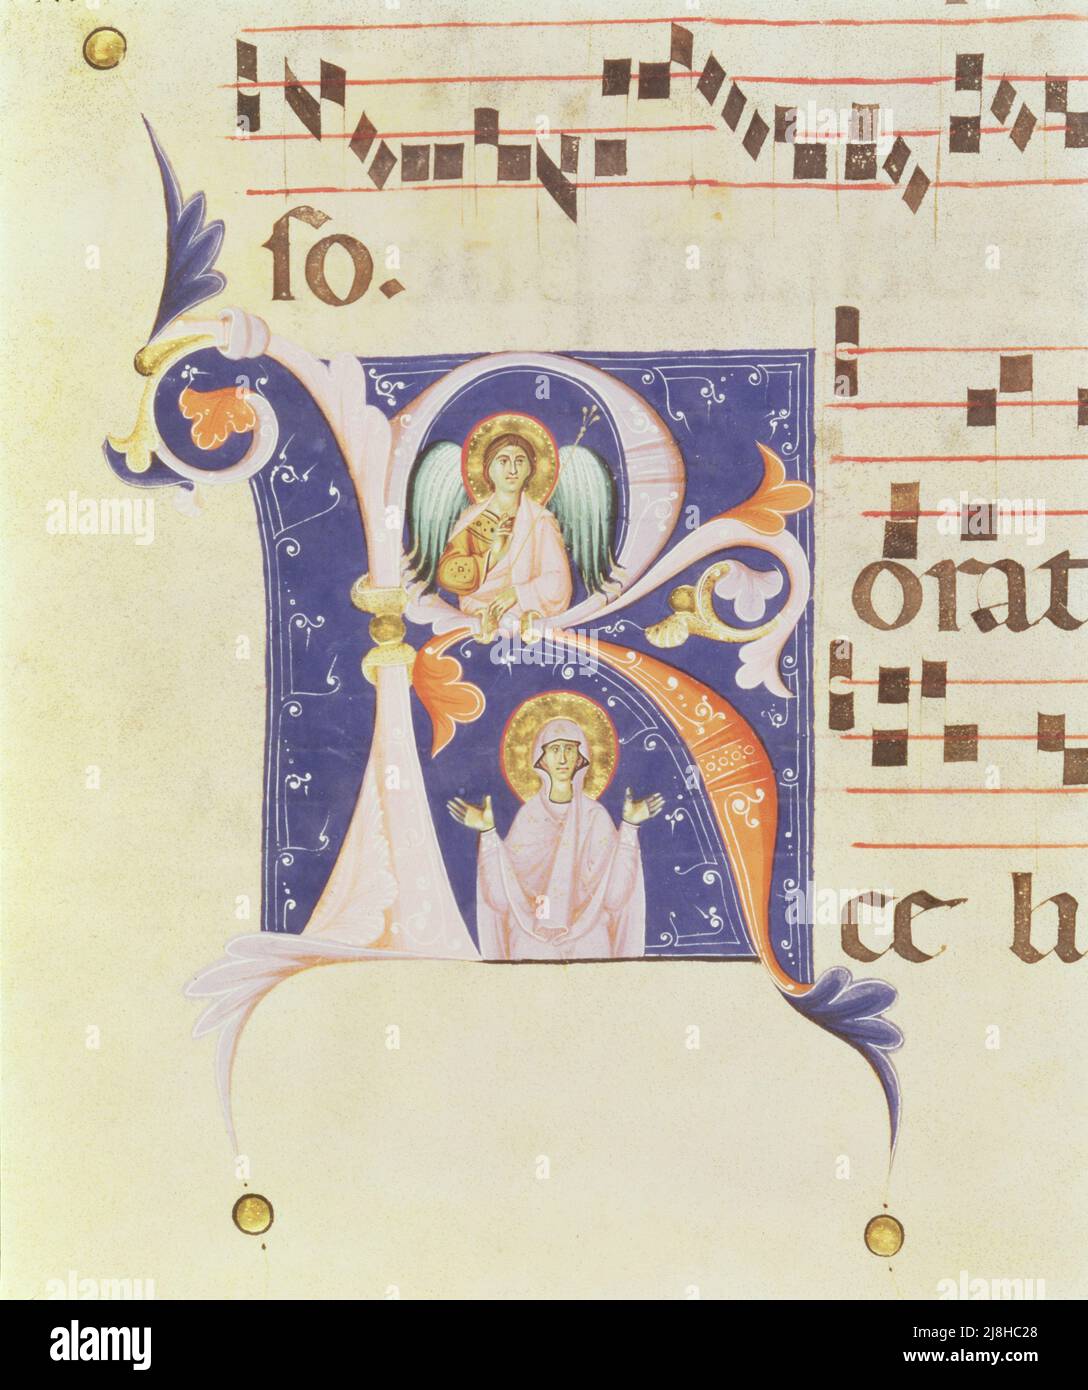 ſo.
R
orat
ce h
alamy
Image ID: 2J8HC28
www.alamy.com